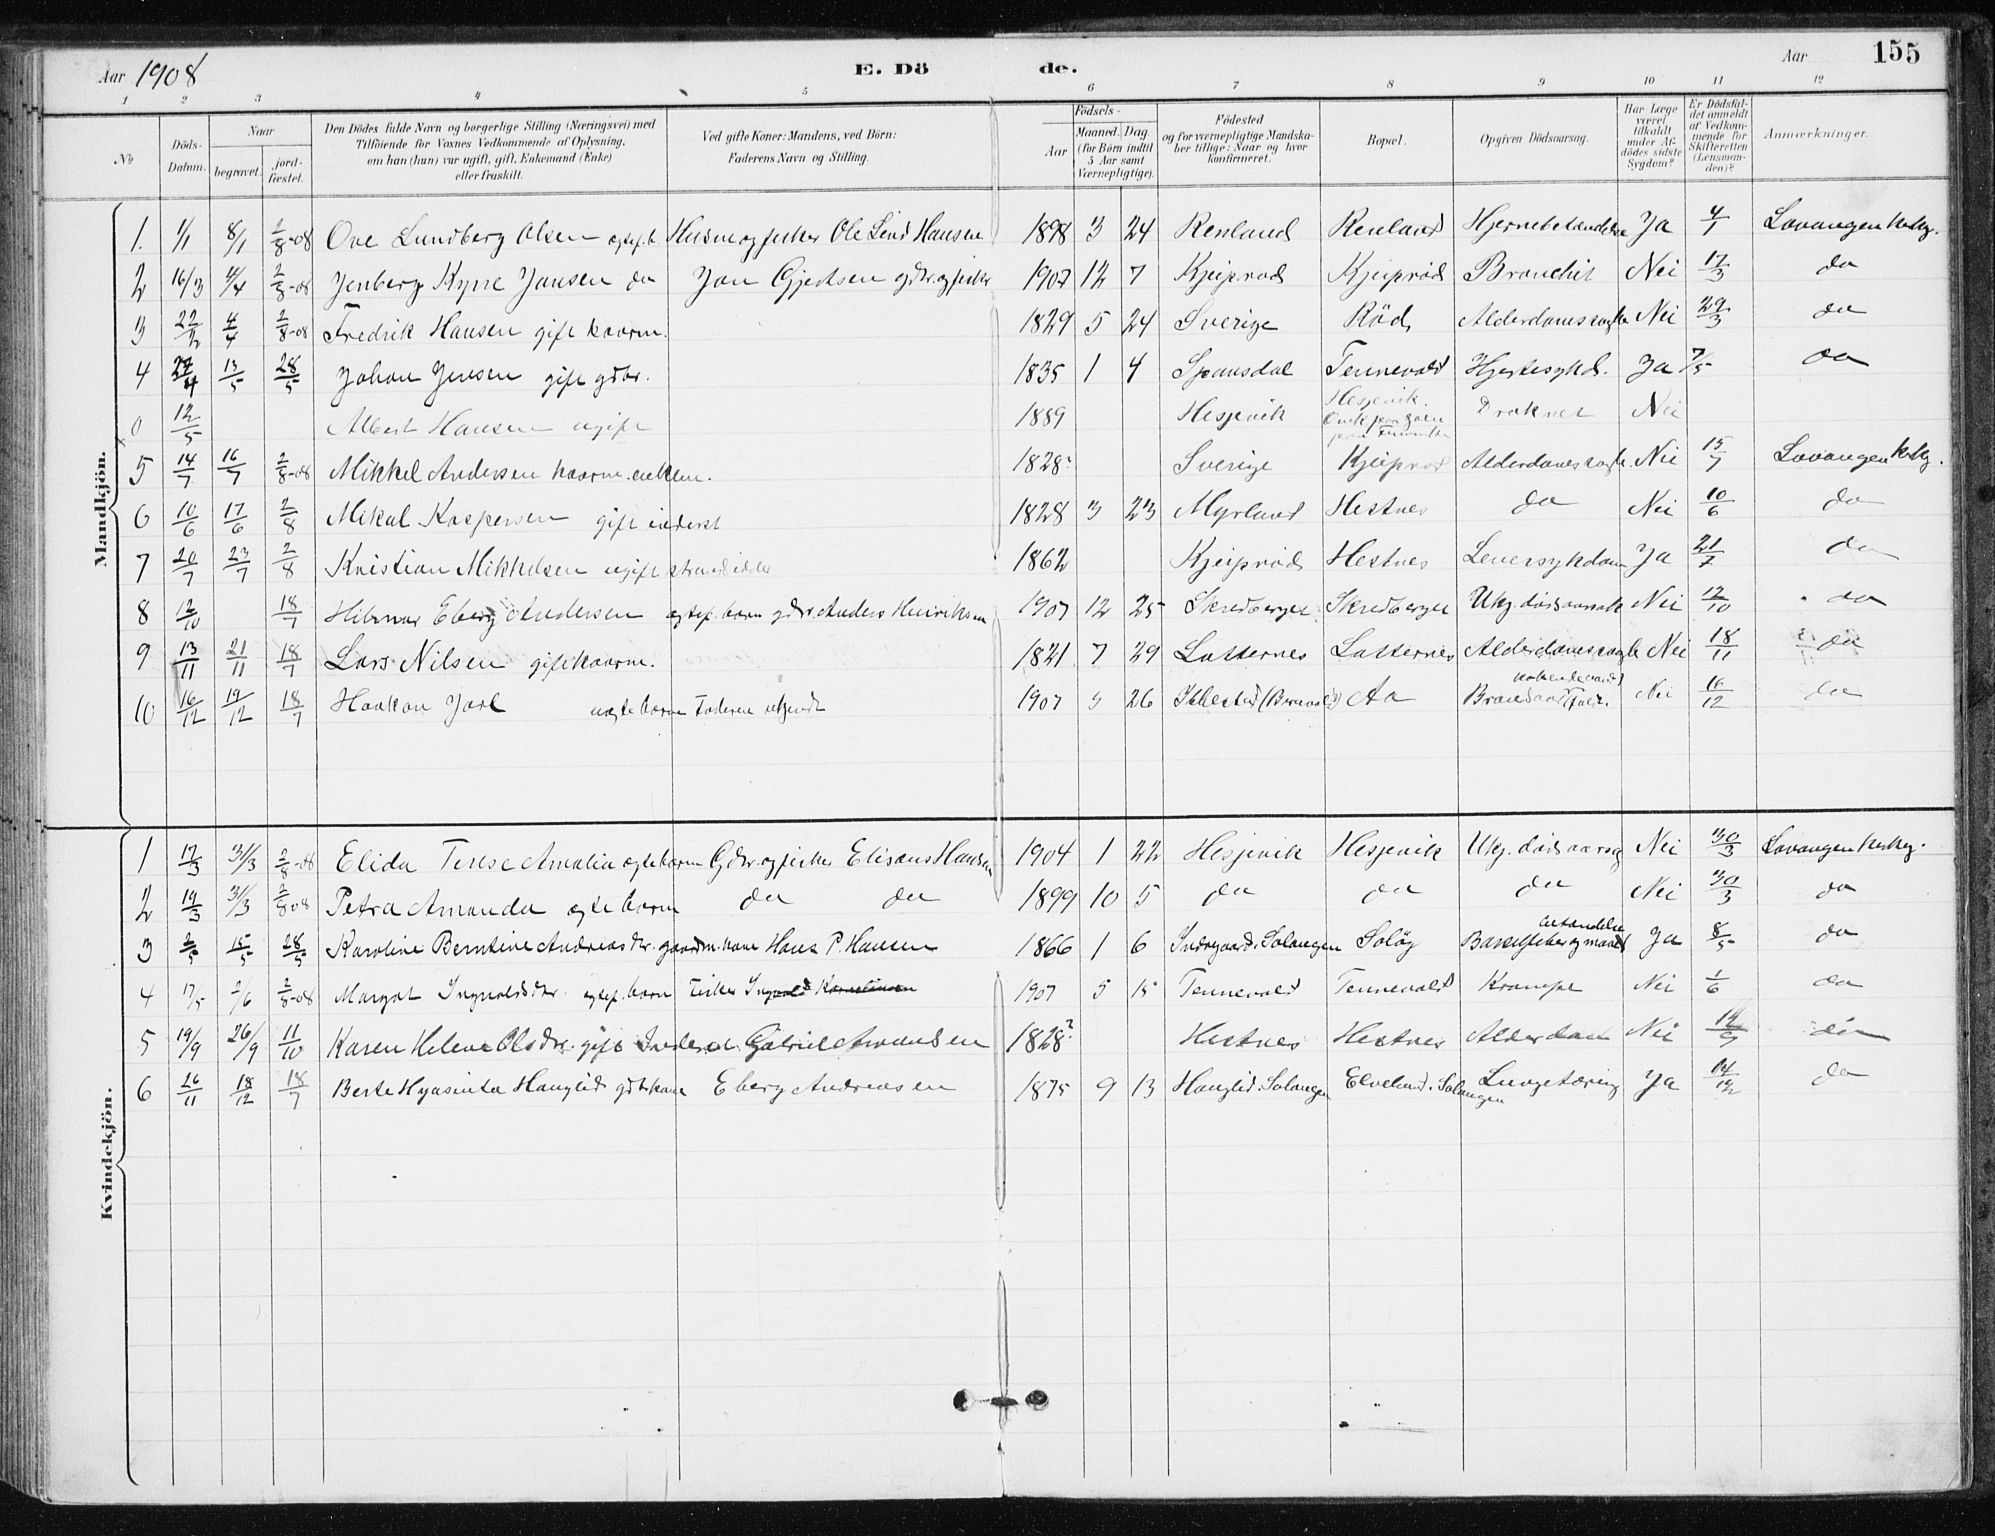 Aar 1908 E. Dö de. Aar 155
1 2 3 4 5 6 7 8 9 10 11 12
No
Döds-Datum.
Naar
begravet.
jord-fæstet.
Den Dödes fulde Navn og borgerlige Stilling (Næringsvei) med
Tilföiende for Voxnes Vedkommende af Oplysning,
om han (hun) var ugift, gift, Enkemand (Enke)
eller fraskilt.
Ved gifte Koner: Mandens, ved Börn:
Faderens Navn og Stilling.
Födsels-
Aar
Maaned. Dag.
(for Börn indtil
5 Aar samt
Værnepligtige).
Födested
og for værnepligtige Mandska-
ber tillige: Naar og hvor
konfirmeret.
Bopæl.
Opgiven Dödsaarsag.
Har Læge
været
tilkaldt
under Af-
dödes sidste
Sygdom?
Er Dödsfal-
det anmeldt
af Vedkom-
mende for
Skifteretten
(Lensman-
den)?
Anmærkninger.
Mandkjön.
1. 1/1 8/1 2/8-08 Ove Lundberg Olsen ægtef.b. Husm og fisker Ole Lind Hansen 1898 3 24 Renland Renland Hjernebetændelse Ja 4/1 Lavangen kirkeg.
2 16/3 4/4 2/8-08 Jenberg Kyrre Jansen do Jan Gjertsen gdbr. og fisker 1907 12 7 Kjeiprød Kjeiprød Bronchit Nei 17/3 do
3 22/2 4/4 2/8-08 Fredrik Hansen gift kaarm. 1829 5 24 Sverige Röd Alderdomssvagh. Nei 29/3 do
4 27/4 13/5 28/5 Johan Jensen gift gdbr. 1835 1 4 Spansdal Tennevold Hjertesykd. Ja 7/5 do
0 12/5 Albert Hansen ugift 1889 Hesjevik Hesjevik. Omk. paa Druknet Nei
5 14/7 16/7 2/8-08 Mikkel Andersen kaarm. enkem. 1828? Sverige Kjeiprød Alderdomssvagh. Nei 15/7 Lavangen kirkeg.
6 10/6 17/6 2/8 Mikal Kaspersen gift inderst 1828 3 23 Myrland Hestnes do Nei 10/6 do
7 20/7 23/7 2/8 Kristian Mikkelsen ugift strandsidder 1862 Kjeiprød Hestnes Leversykdom Ja 21/7 do
8 12/10 18/7 Hilmar Eberg Andersen ægtef. barn gdbr. Anders Henriksen 1907 12 25 Skredberget Skredberget Ukj. dødsaarsak Nei 17/10 do
9 13/11 21/11 18/7 Lars Nilsen gift kaarm. 1821 7 29 Latternes Latternes Alderdomssvagh Nei 18/11 do
10 16/12 19/12 18/7 Haakon Jarl uægte barn Faderen ukjendt 1907 5 26 Ibbestad Aa Brandsaar Nei 16/12 do
Kvindekjön.
1 17/3 31/3 2/8-08 Elida Terese Amalia ægte barn Gdbr. og fisker Elisæus Hansen 1904 1 22 Hesjevik Hesjevik Ukj. dødsaarsag Nei 30/3 Lavangen kirkeg.
2 19/3 31/3 2/8 08 Petra Amanda ægte barn do do 1899 10 5 do do do Nei 30/3 do
3 2/5 15/5 28/5 Karoline Berntine Andreasdtr. gaardm. kone Hans P. Hansen 1866 1 6 Indregaard. Salangen Soløy Barselfeber og Ja 8/5 do
4 17/5 2/6 2/8-08 Margot Ingvaldsdtr. ægtef. barn Fisker Ingvald Karnelius 1907 5 15 Tennevold Tennevold Krampe Nei 1/6 do
5 19/9 26/9 11/10 Karen Helene Olsdtr. gift Inderst Gabriel Amundsen 1828? Hestnes Hestnes Alderdom Nei 19/9 do
6 26/11 18/12 18/7 Berte Hyasinta Hauglid gdbrkone Eberg Andreassen 1875 9 13 Hauglid. Salangen Elveland. Salangen Lungetæring Ja 14/12 do